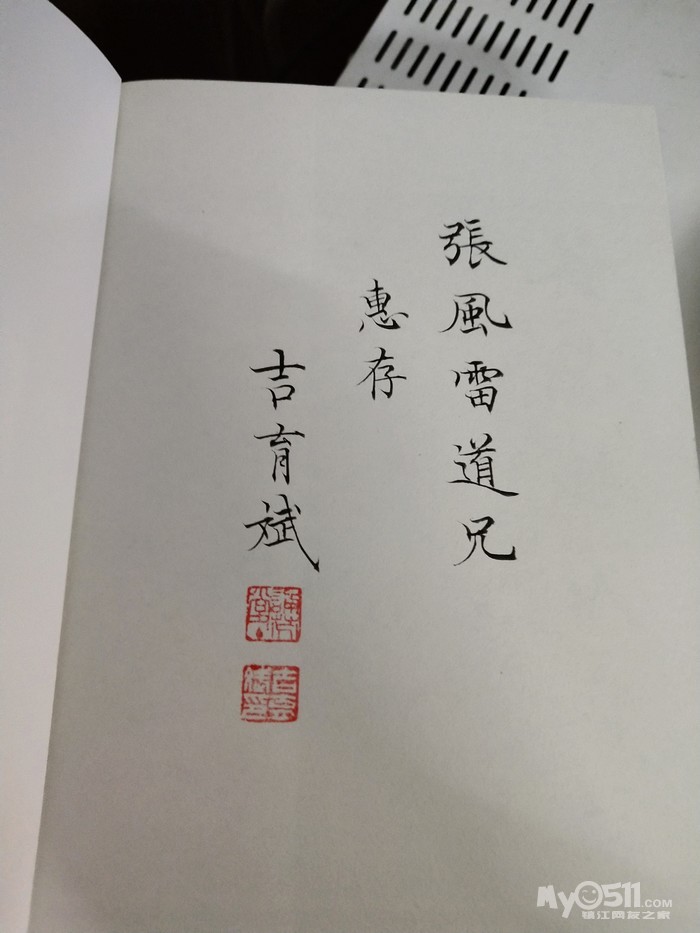 張風雷道兄
惠存
吉育斌
My0511.COM
镇江网友之家